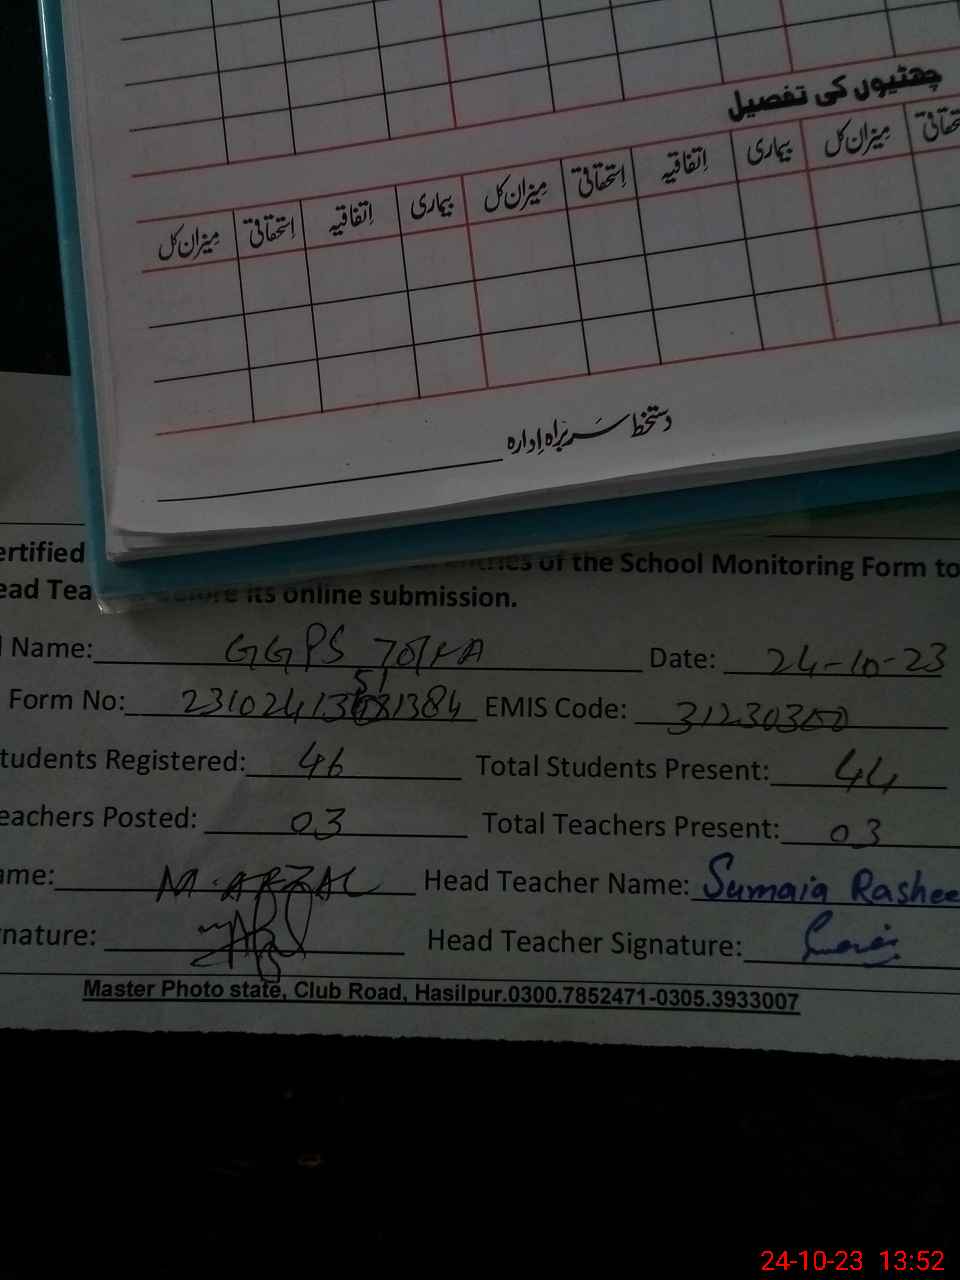 چھٹیوں کی تفصیل
اِستحقاقی میزان کل بیماری اِتفاقیہ اِستحقاقی میزان کل بیماری اِتفاقیہ اِستحقاقی میزان کل
دستخط سربراہ اِدارہ
ertified entries of the School Monitoring Form to
ead Tea before its online submission.
l Name: GGPS Date: 24-10-23
Form No: EMIS Code: 31230300
tudents Registered: 46 Total Students Present: 44
eachers Posted: 03 Total Teachers Present: 03
ame: M. AFZAL Head Teacher Name: Sumaia Rashee
nature: Head Teacher Signature:
Master Photo state, Club Road, Hasilpur.0300.7852471-0305.3933007
24-10-23 13:52